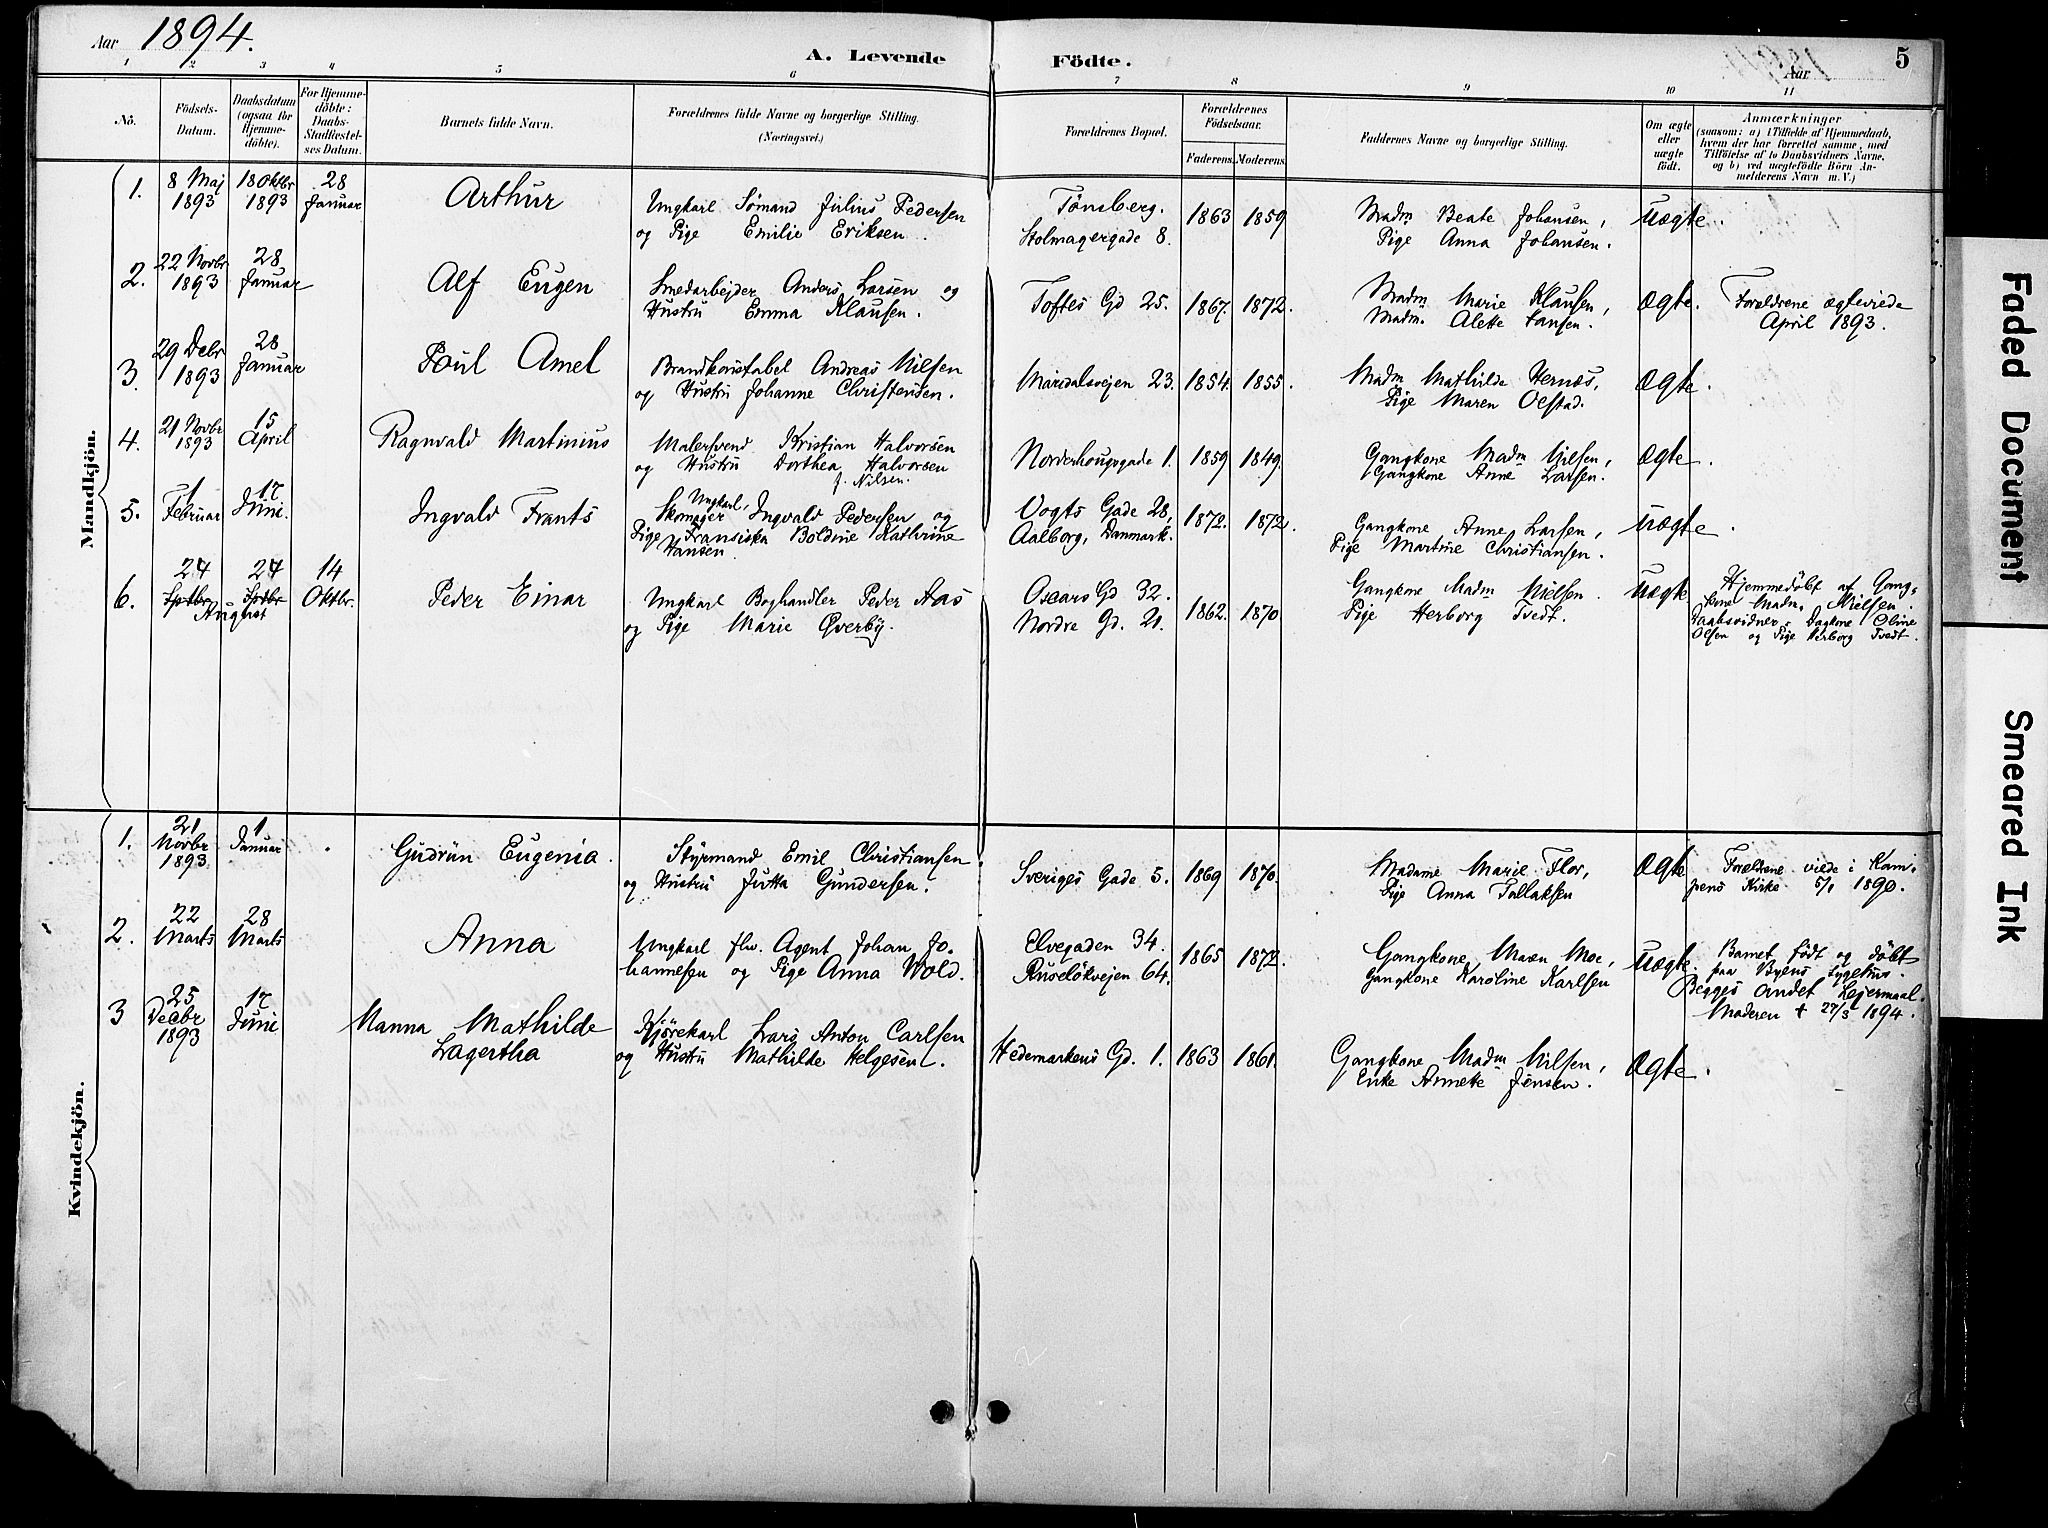 Aar 1894.
A. Levende Födte.
Aar
5
1 2 3 4 5 6 7 8 9 10 11
Nö.
Födsels-Datum.
Daabsdatum (ogsaa for Hjemme-döbte).
For Hjemme-döbte: Daabs-Stadfæstel-ses Datum.
Barnets fulde Navn.
Forældrenes fulde Navne og borgerlige Stilling. (Næringsvei.)
Forældrenes Bopæl.
Forældrenes Födselsaar.
Faderens. Moderens.
Faddernes Navne og borgerlige Stilling.
Om ægte eller uægte födt.
Anmærkninger
(saasom: a) i Tilfælde af Hjemmedaab,
hvem der har forrettet samme, med
Tilföielse af to Daabsvidners Navne,
og b) ved uægtefödte Börn An-
melderens Navn m. V.)
Mandkjön.
1. 8 Maj 1893 18 Oktbr 1893 28 Januar Arthur Ungkarl Sømand Julius Pedersen og Pige Emilie Eriksen. Tønsberg. Stolmagergade 8. 1863 1859 Madm Beate Johansen, Pige Anna Johansen. uægte.
2. 22 Novbr 1893 28 Januar Alf Eugen Smedarbejder Anders Larsen og Hustru Emma Klausen. Toftes Gd 25. 1867. 1872. Madm Marie Klausen, Madm. Alette Hansen. ægte. Forældrene ægteviede April 1893.
3. 29 Debr 1893 28 Januar Poul Amel Brandkonstabel Andreas Nilsen og Hustru Johanne Christensen. Maridalsvejen 23. 1854. 1855. Madm Mathilde Hernæs, Pige Maren Oestad. ægte.
4. 21 Novbr 1893 15 April Ragnvald Martinius Malersvend Kristian Halvorsen og Hustru Dorthea Halvorsen f. Nilsen. Norderhougsgade 1. 1859 1849. Gangkone Madm Nilsen, Gangkone Anne Larsen. ægte.
5. 1 Februar 17 Juni. Ingvald Frants Ungkarl, Skomager Ingvald Pedersen og Pige Fransiska Boldine Kathrine Hansen. Vogts Gade 28, Aalborg, Danmark. 1872. 1872. Gangkone Anne Larsen, Pige Martine Christiansen. uægte.
6. 24 Sptbr August 24 Sptbr 14 Oktbr. Peder Einar Ungkarl Boghandler Peder Aas og Pige Marie Øverby. Oscars Gd 32. Nordre Gd. 21. 1862. 1870 Gangkone Madm Nielsen. Pige Herborg Tvedt. uægte Hjemmedöbt af Gang-kone Madm. Nielsen. Daabsvidner, Dagkone Oline Olsen og Pige Herborg Tvedt.
Kvindekjön.
1. 21 Novbr 1893 1 Januar Gudrun Eugenia. Styrmand Emil Christiansen og Hustru Jutta Gundersen. Sveriges Gade 5. 1869 1870. Madame Marie Flor, Pige Anna Tollaksen ægte Forældrene viede i Kam-pens Kirke 5/1 1890.
2. 22 Marts 28 Marts Anna Ungkarl fhv. Agent Johan Jo-hannesen og Pige Anna Wold. Elvegaden 34. Ruseløkvejen 64. 1865 1872. Gangkone Maren Moe, Gangkone Karoline Karlsen uægte. Barnet født og døbt paa Byens Sygehus. Begges andet Lejermaal. Moderen † 27/3 1894.
3 25 Decbr 1893 17 Juni Nanna Mathilde Lagertha Kjørekarl Lars Anton Carlsen og Hustru Mathilde Helgesen. Hedemarkens Gd. 1. 1863 1861. Gangkone Madm Nilsen, Enke Annette Jensen. ægte.
Faded Document
Smeared Ink